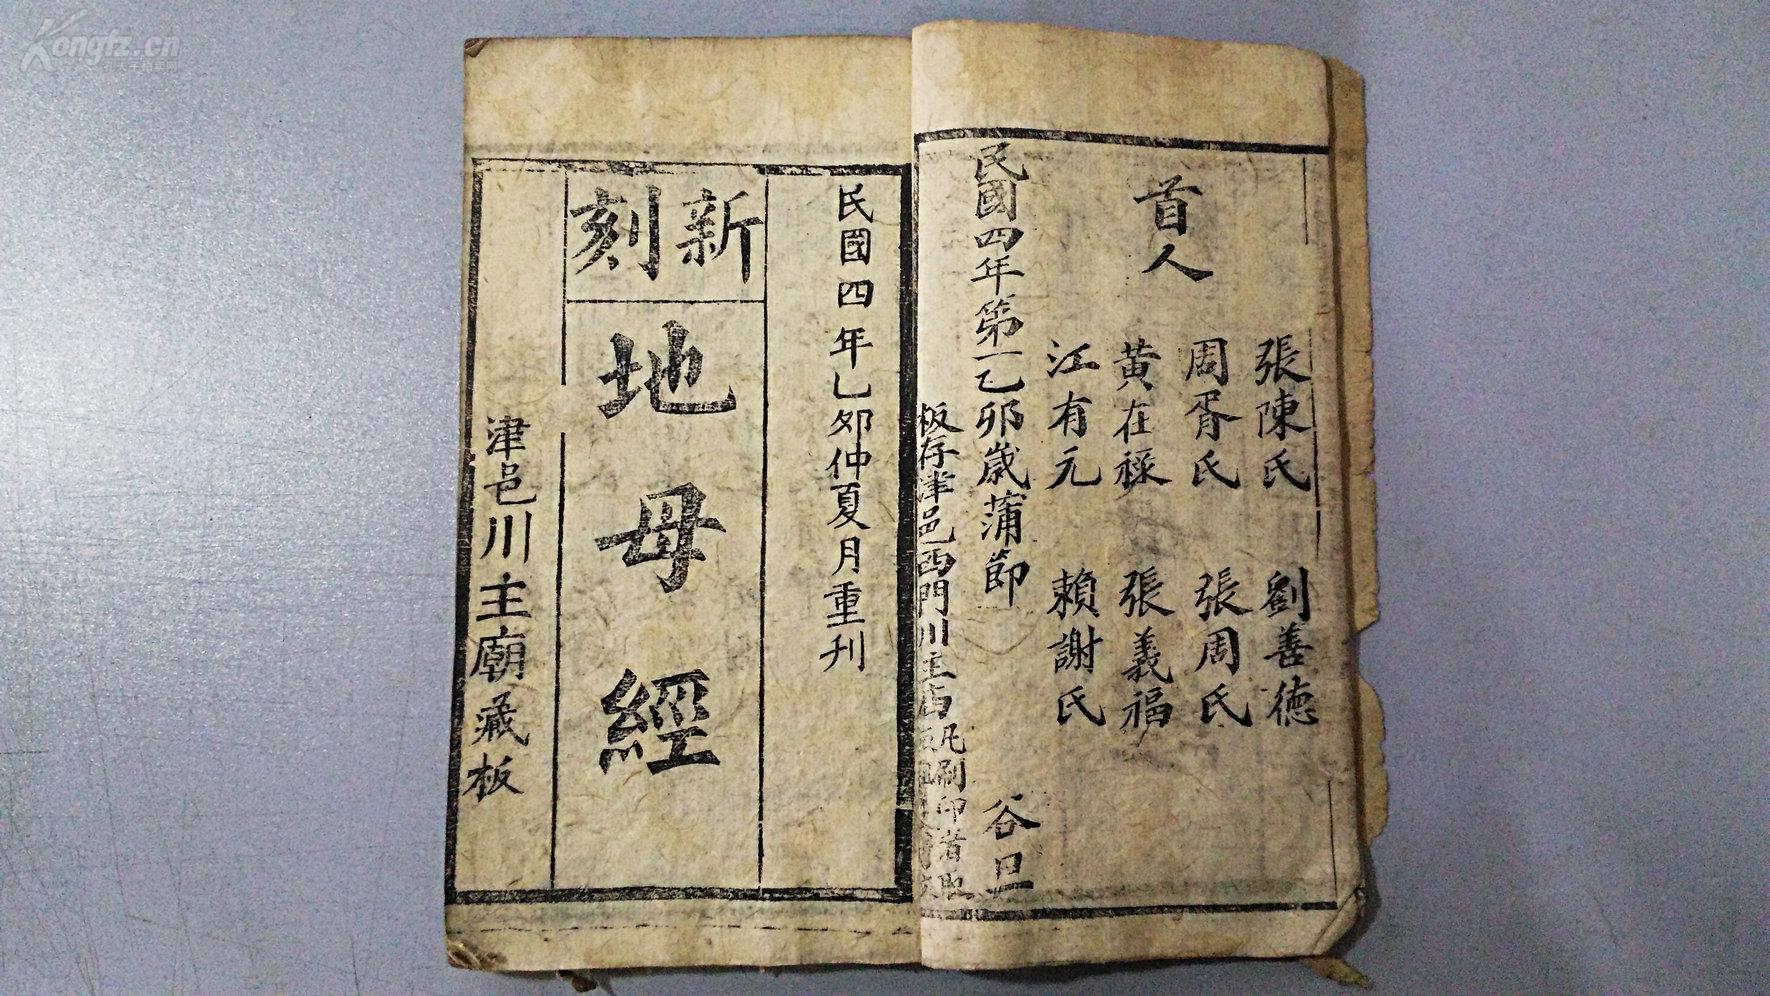 首人
張陳氏 劉善德
周胥氏 張周氏
黃在祿 張義福
江有元 賴謝氏
民國四年第一乙卯歲蒲節 谷旦
板存津邑西門川主店
凡刷印者取
民國四年乙卯仲夏月重刊
新刻
地母經
津邑川主廟藏板
Kongfz.cn